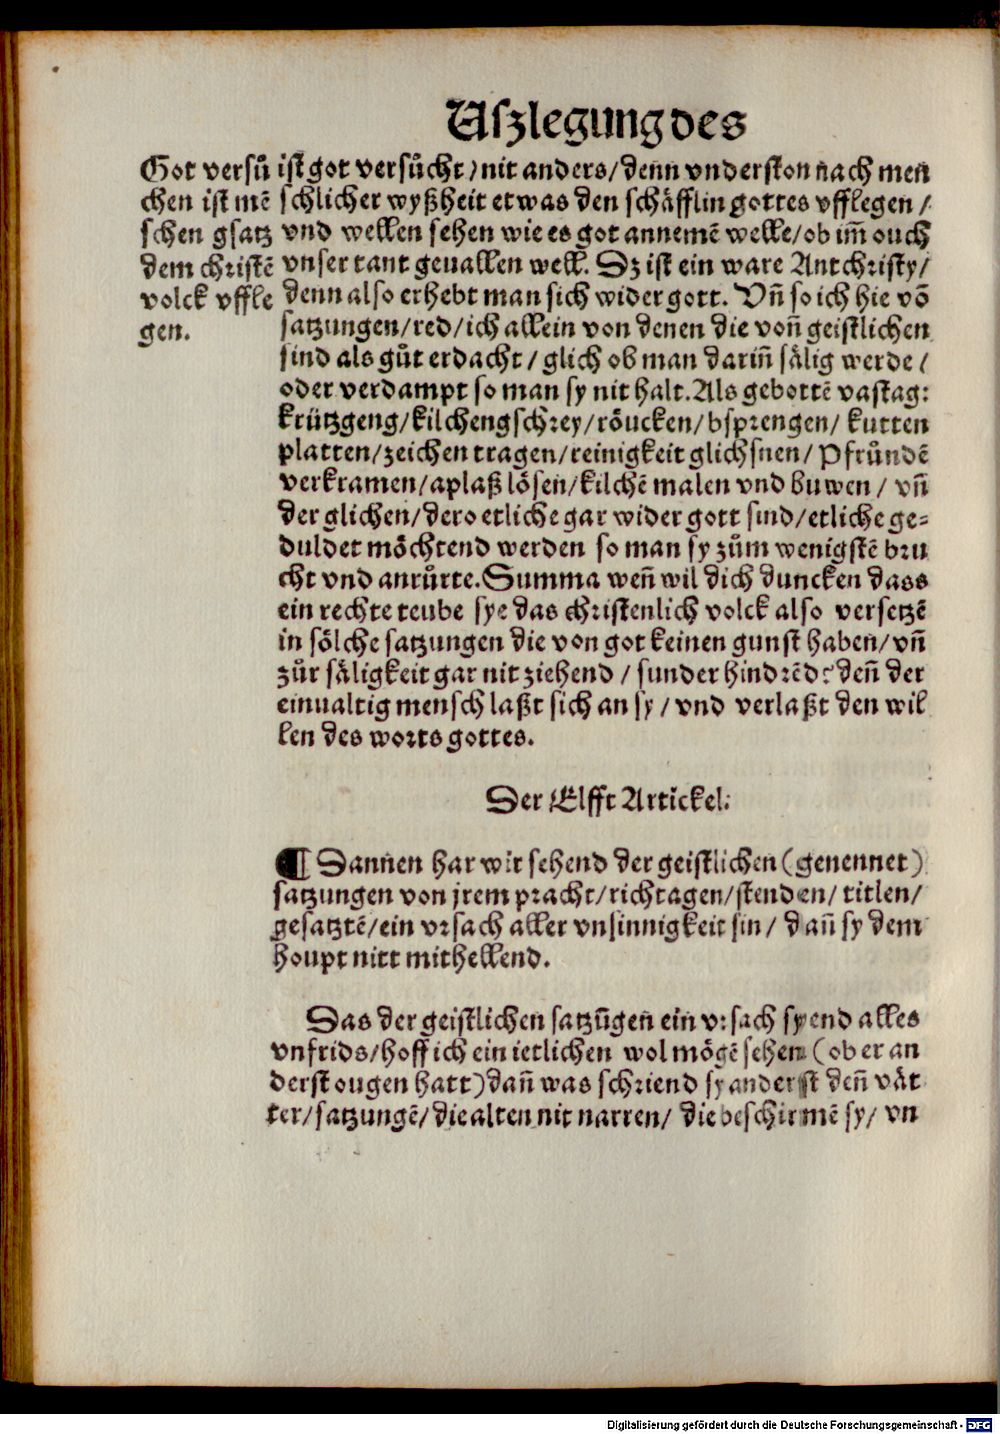 Uſzlegung des
Got verſů
chen iſt mē
ſchen gſatz
dem chriſtē
volck vffle
gen.
iſt got verſůcht / nit anders / denn vnderſton nach men
ſchlicher wyßheit etwas den ſchäfflin gottes vfflegen /
vnd wellen ſehen wie es got annemē welle / ob im̄ ouch
vnſer tant geuallen well. Dz iſt ein ware Antchriſty /
denn alſo erhebt man ſich wider gott. Vn̄ ſo ich hie vō
ſatzungen / red / ich allein von denen die von̄ geiſtlichen
ſind als gůt erdacht / glich ob man darin̄ ſälig werde /
oder verdampt ſo man ſy nit halt. Als gebottē vaſtag:
krützgeng / kilchengſchrey / röucken / bſprengen / kutten
platten / zeichen tragen / reinigkeit glichſnen / Pfründē
verkramen / aplaß löſen / kilchē malen vnd buwen / vn̄
der glichen / dero etliche gar wider gott ſind / etliche ge⸗
duldet möchtend werden ſo man ſy zům wenigſtē bru
cht vnd anrůrte. Summa wen̄ wil dich duncken dass
ein rechte teube ſye das chriſtenlich volck alſo verſetzē
in ſölche ſatzungen die von got keinen gunſt haben / vn̄
zůr ſäligkeit gar nit ziehend / ſunder hindrēd: den̄ der
einualtig menſch laßt ſich an ſy / vnd verlaßt den wil
len des worts gottes.
Der Elfft Artickel:
¶ Dannen har wir ſehend der geiſtlichen (genennet)
ſatzungen von jrem pracht / richtagen / ſtenden / titlen /
geſatztē / ein vrſach aller vnſinnigkeit ſin / dan̄ ſy dem
houpt nitt mithellend.
Das der geiſtlichen ſatzūgen ein vrſach ſyend alles
vnfrids / hoff ich ein ietlichen wol mögē ſehen (ob er an
derſt ougen hatt) dan̄ was ſchriend ſy anderſt den̄ vät
ter / ſatzungē / die alten nit narren / die beſchirmē ſy / vn
Digitalisierung gefördert durch die Deutsche Forschungsgemeinschaft - DFG